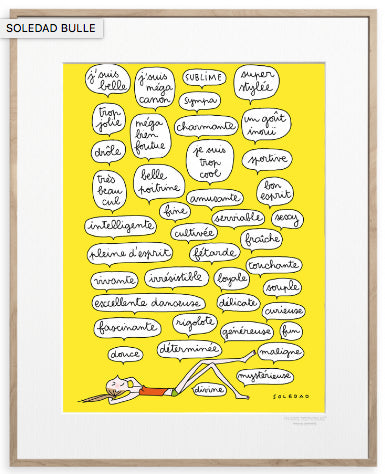 SOLEDAD BULLE
j'suis
belle
j'suis
méga
canon
SUBLIME
super
stylée
sympa
trop
jolie
méga
bien
foutue
charmante
un goût
inouï
drôle
je suis
trop
cool
sportive
très
beau
cul
belle
poitrine
amusante
bon
esprit
fine
serviable
sexy
intelligente
cultivée
fraîche
pleine d'esprit
fêtarde
touchante
vivante
irrésistible
loyale
souple
excellente danseuse
délicate
curieuse
fascinante
rigolote
généreuse
fun
douce
déterminée
maligne
mystérieuse
divine
SOLEDAD